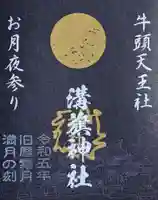 牛頭天王社
お月夜参り
溝旗神社
令和五年
旧暦葉月
満月の刻